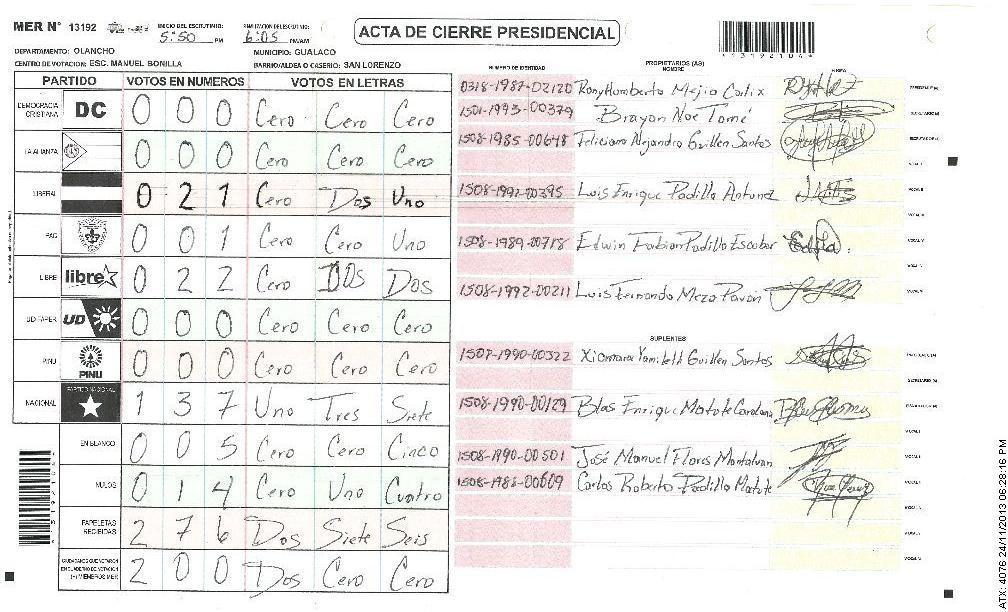 MER N° 13192
INICIO DEL ESCRUTINIO: 5:50 PM
FINALIZACION DEL ESCRUTINIO: 6:05 PM/AM
ACTA DE CIERRE PRESIDENCIAL
DEPARTAMENTO: OLANCHO
MUNICIPIO: GUALACO
CENTRO DE VOTACION: ESC. MANUEL BONILLA
BARRIO/ALDEA O CASERIO: SAN LORENZO
PARTIDO VOTOS EN NUMEROS VOTOS EN LETRAS
DEMOCRACIA CRISTIANA DC 0 0 0 Cero Cero Cero
LA ALIANZA 0 0 0 Cero Cero Cero
LIBERAL 0 2 1 Cero Dos Uno
PAC 0 0 1 Cero Cero Uno
LIBRE libre 0 2 2 Cero DOS Dos
UD FAPER UD 0 0 0 Cero Cero Cero
PINU PINU 0 0 0 Cero Cero Cero
NACIONAL PARTIDO NACIONAL 1 3 7 Uno Tres Siete
EN BLANCO 0 0 5 Cero Cero Cinco
NULOS 0 1 4 Cero Uno Cuatro
PAPELETAS RECIBIDAS 2 7 6 Dos Siete Seis
CIUDADANOS QUE VOTARON EN CUADERNO DE VOTACION (+) MIEMBROS MER 2 0 0 Dos Cero Cero
NUMERO DE IDENTIDAD
PROPIETARIOS (AS)
NOMBRE
FIRMA
0318-1987-02120 Rony Humberto Mejia Calix
1501-1993-00379 Brayon Noe Tomé
1508-1985-00648 Feliciano Alejandro Guillen Santos
1508-1992-00395 Luis Enrique Padilla Antunez
1508-1989-00718 Edwin Fabian Padilla Escobar
1508-1992-00211 Luis Fernando Meza Pavon
SUPLENTES
1507-1990-00322 Xiomara Yamileth Guillen Santos
1508-1990-00129 Blas Enrique Matute Cardona
1508-1990-00501 José Manuel Flores Montalvan
1508-1986-00609 Carlos Roberto Padilla Matute
ATX: 4076 24/11/2013 06:28:16 PM